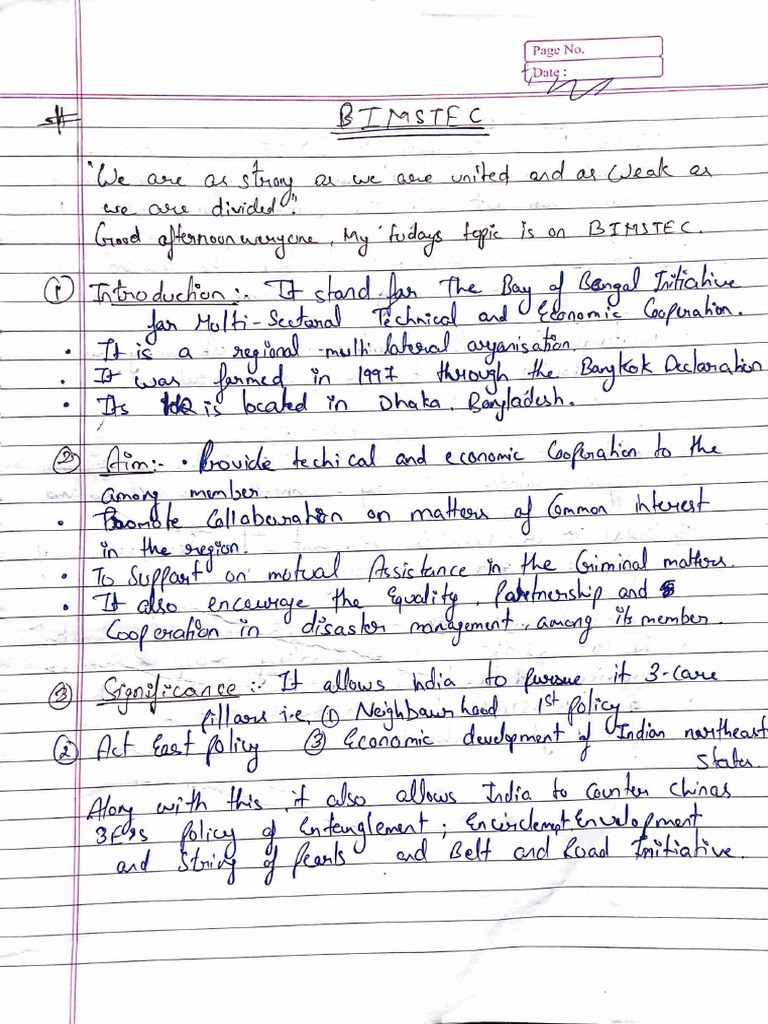 Page No.
Date :
# BIMSTEC
"We are as strong as we are united and as weak as
we are divided".
Good afternoon everyone, My todays topic is on BIMSTEC.
① Introduction :- It stand for The Bay of Bengal Initiative
for Multi-Sectoral Technical and Economic Cooperation.
• It is a regional multilateral organisation
• It was formed in 1997 through the Bangkok Declaration
• Its HQ is located in Dhaka, Bangladesh.
② Aim:- • Provide techical and economic Cooperation to the
among member.
• Promote Collaboration on matters of Common interest
in the region.
• To Support on mutual Assistance in the Criminal matters.
• It also encourage the Equality, Partnership and
Cooperation in disaster management, among its member.
③ Significance :- It allows India to pursue it 3-core
pillars i.e, ① Neighbourhood 1st policy
② Act East policy ③ Economic development of Indian northeast
States.
Along with this, it also allows India to Counter Chinas
3E's policy of Entanglement ; Encirclempt Envelopment
and String of Pearls and Belt and Road Initiative.